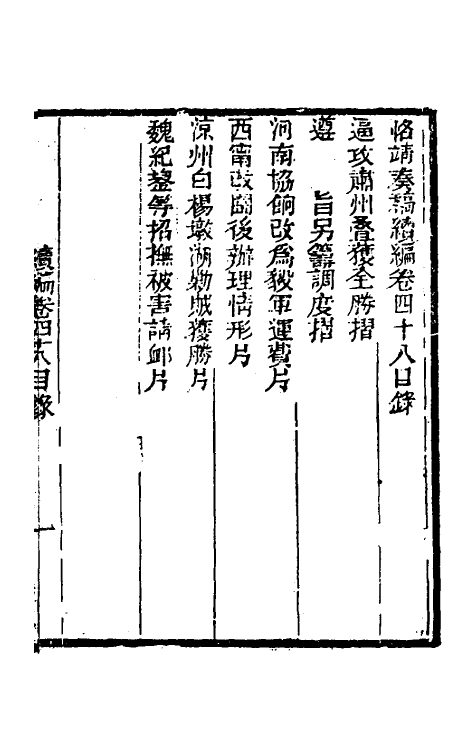 恪靖奏稿續編卷四十八目錄
逼攻肅州疊獲全勝摺
遵　旨另籌調度摺
河南協餉改爲毅軍運費片
西甯改圖後辦理情形片
涼州白楊墩湖勦賊獲勝片
魏紀鋆等招撫被害請卹片
續編卷四十八目錄　一